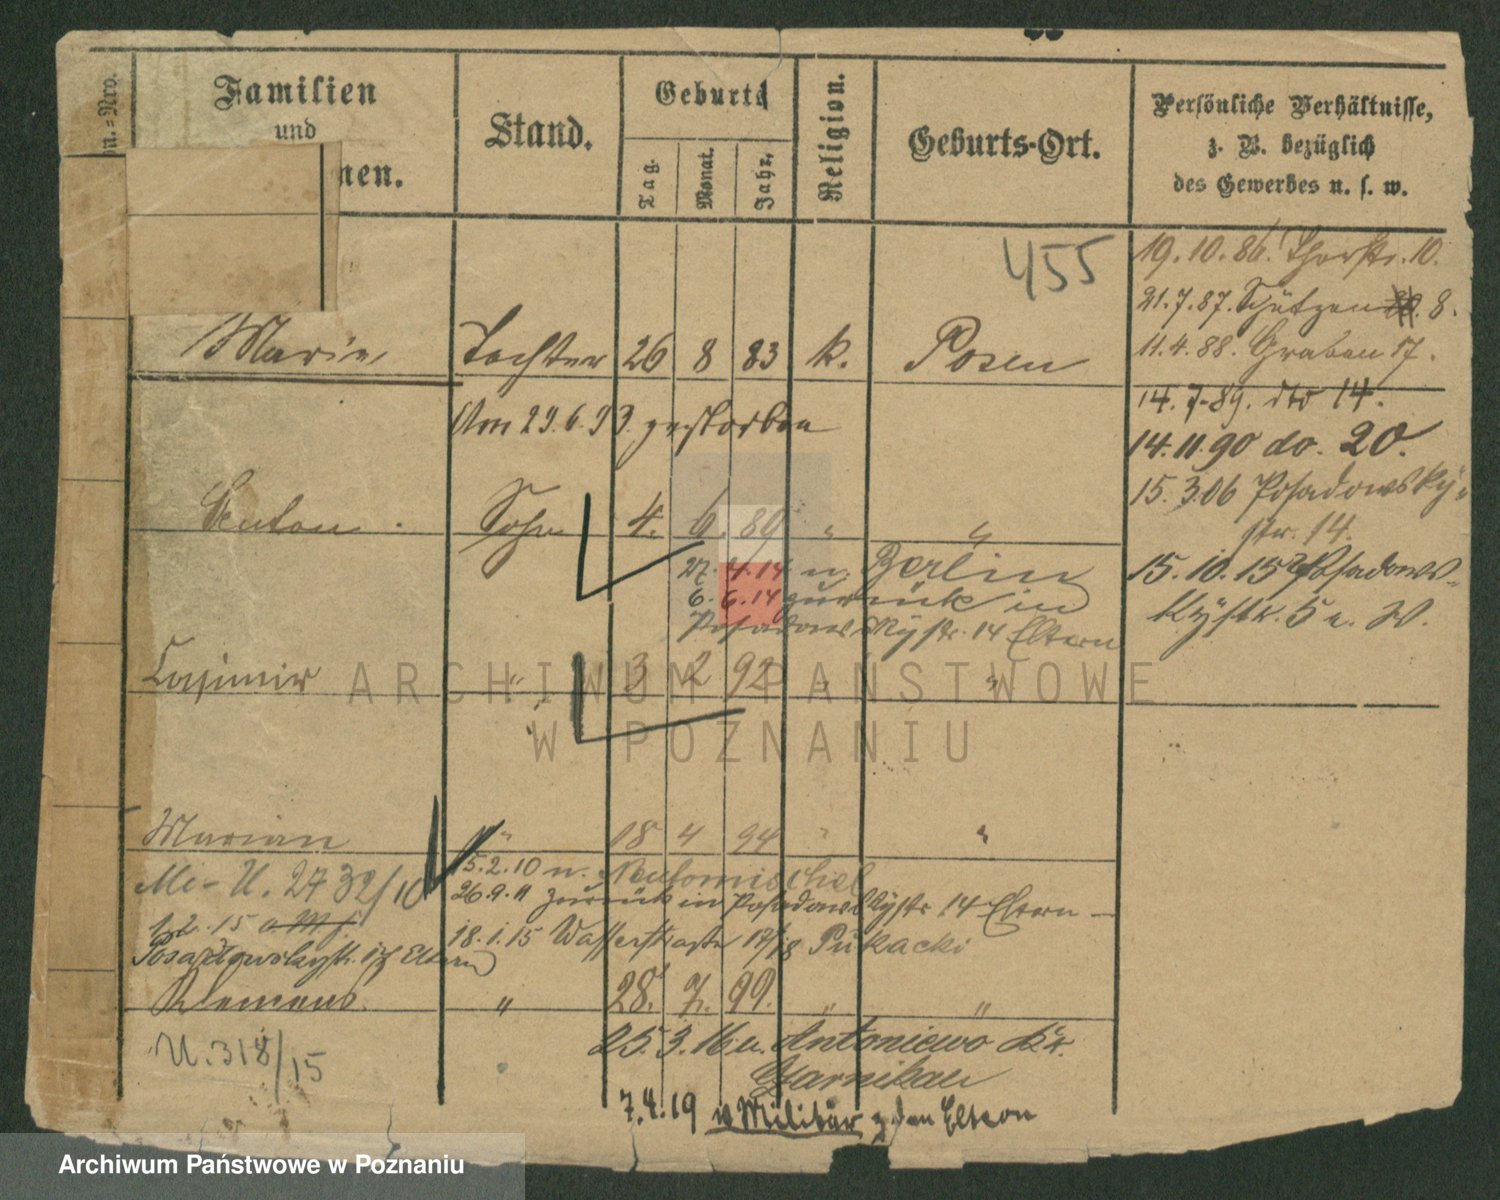 n.=Nro.
Familien
und
nen.
Stand.
Geburts
Tag.
Monat.
Jahr.
Religion.
Geburts-Ort.
Persönliche Verhältnisse,
z. B. bezüglich
des Gewerbes u. s. w.
455
19. 10. 86. Thorstr. 10.
21. 7. 87. Schützen 8.
Marie Tochter 26 8 83 k. Posen
11. 4. 88. Graben 17.
14. 7. 89. dto 14.
Am 29. 6. 93. gestorben
14. 11. 90 do. 20.
15. 3. 06 Posadowsky-
str. 14.
Anton. Sohn 4. 6. 89 " "
27. 4. 14 n. Berlin
6. 6. 14 zurück in
Posadowskystr. 14 Eltern
15. 10. 15 Posadows-
kystr. 5 u. W.
Casimir " 3 2 92 " "
ARCHIWUM PAŃSTWOWE
W POZNANIU
Marian " 18 4 94 " "
U. 2732/10
15. 2. 10 n. Neutomischel
26. 9. 11 zurück in Posadowskystr 14 Eltern
1. 2. 15
Posadowskystr. 14 Eltern
18. 1. 15 Wasserstraße 17/18 Pukacki
Klemens. " 28. 7. 99. " "
U. 318/15
25. 3. 16 n. Antoniewo Kr.
Czarnikau
7. 4. 19 v Militär z den Eltern
Archiwum Państwowe w Poznaniu